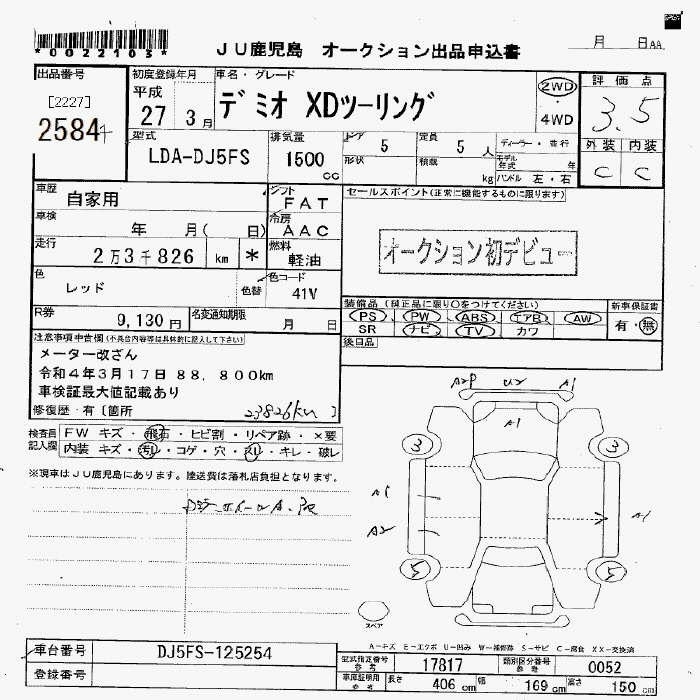 *0022103*
JU鹿児島 オークション出品申込書
月 日 AA
出品番号
[2227]
2584
初度登録年月
平成
27 3月
車名・グレード
デミオ XDツーリング
2WD
・
4WD
評価点
3.5
型式
LDA-DJ5FS
排気量
1500
CC
ドア 5
形状
定員 5人
積載 kg
ディーラー・並行
モデル年式 年
ハンドル 左・右
外装 内装
C C
車歴
自家用
シフト
FAT
セールスポイント(正常に機能するものに限ります)
車検
年 月( 日)
冷房
AAC
オークション初デビュー
走行
2万3千826 km *
燃料
軽油
色
レッド
色替
色コード
41V
装備品(純正品に限り○をつけてください)
PS PW ABS エアB AW
SR ナビ TV カワ
新車保証書
有・無
R券
9,130円
名変通知期限
月 日
後日品
注意事項申告欄(不具合内容等は具体的に記入して下さい)
メーター改ざん
令和4年3月17日 88,800km
車検証最大値記載あり
修復歴・有〔箇所 23826km 〕
検査員記入欄
FW キズ・飛石・ヒビ割・リペア跡・×要
内装 キズ・汚れ・コゲ・穴・スリ・キレ・破レ
※現車はJU鹿児島にあります。陸送費は落札店負担となります。
A2P U2 A1
A1
3 3
A1
A2
A1
5 5
スペア
A-キズ E-エクボ U-凹み W-補修跡 S-サビ C-腐食 XX-交換済
車台番号
DJ5FS-125254
登録番号
型式指定番号 参考
17817
類別区分番号 参考
0052
車庫証明用 参考
長さ 406cm 幅 169cm 高さ 150cm